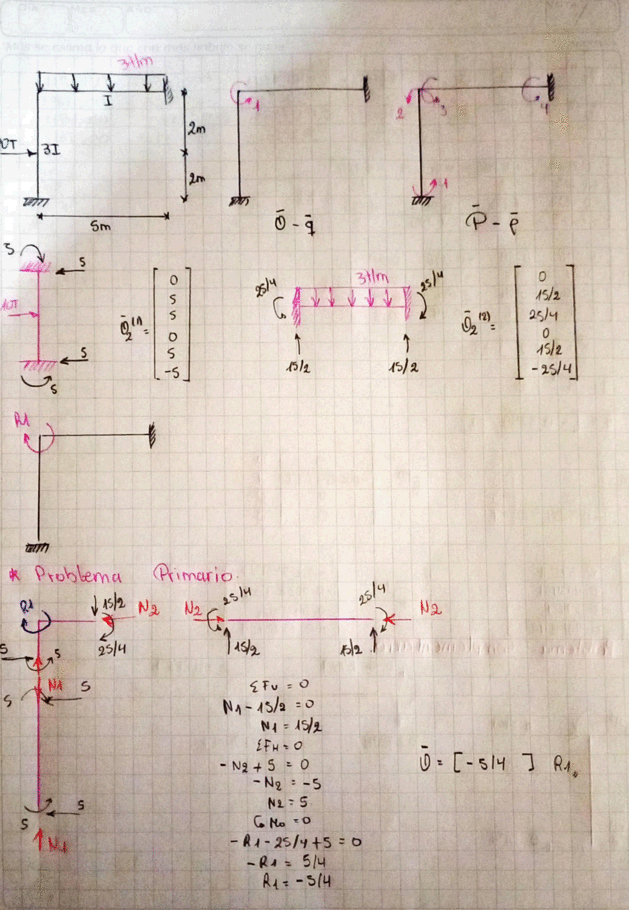 3T/m
I
10T
3I
2m
2m
5m
1
Q̄ - q̄
2
3
4
1
P̄ - p̄
5
5
10T
5
5
Q̄₂⁽¹⁾ =
0
5
5
0
5
-5
3T/m
25/4
25/4
15/2
15/2
Q̄₂⁽²⁾ =
0
15/2
25/4
0
15/2
-25/4
R1
* Problema Primario.
R1
15/2
N2
25/4
5
5
N1
5
5
5
5
N1
N2
25/4
15/2
25/4
N2
15/2
ΣFv = 0
N1 - 15/2 = 0
N1 = 15/2
ΣFH = 0
- N2 + 5 = 0
- N2 = -5
N2 = 5
Mo = 0
- R1 - 25/4 + 5 = 0
- R1 = 5/4
R1 = -5/4
Q̄ = [ -5/4 ] R1